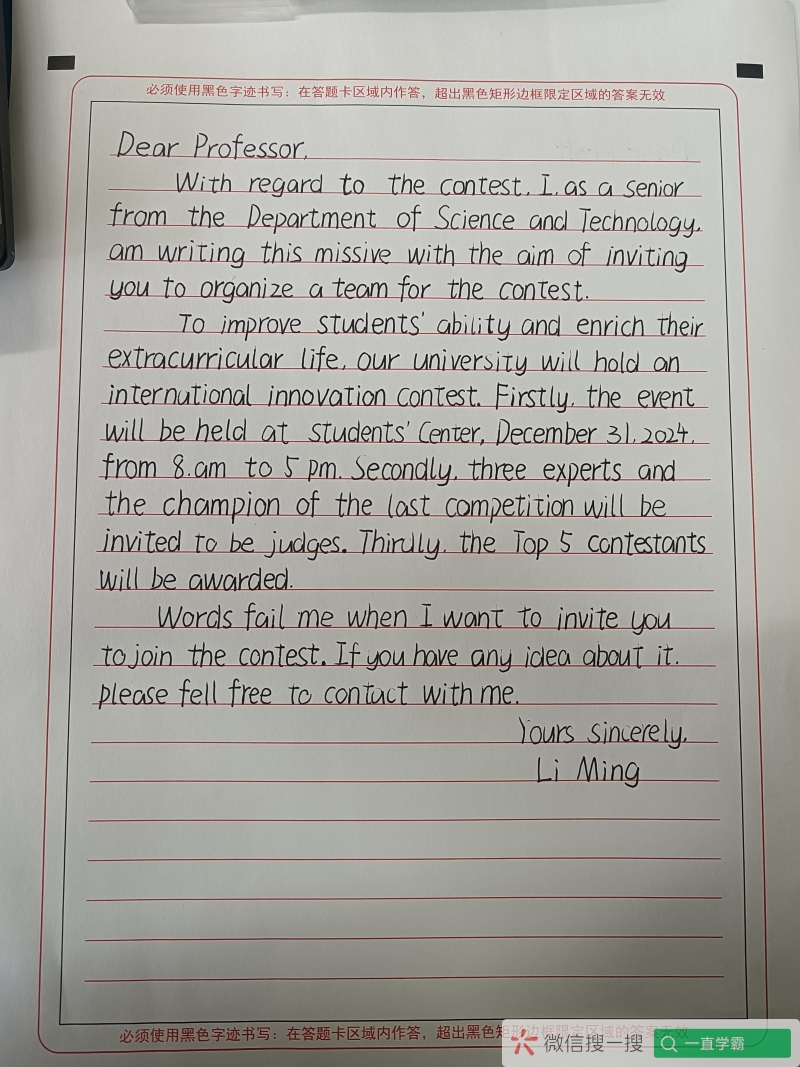 必须使用黑色字迹书写：在答题卡区域内作答，超出黑色矩形边框限定区域的答案无效
Dear Professor,
With regard to the contest, I, as a senior
from the Department of Science and Technology,
am writing this missive with the aim of inviting
you to organize a team for the contest.
To improve students' ability and enrich their
extracurricular life, our university will hold an
international innovation contest. Firstly, the event
will be held at students' Center, December 31, 2024,
from 8.am to 5 pm. Secondly, three experts and
the champion of the last competition will be
invited to be judges. Thirdly, the Top 5 contestants
will be awarded.
Words fail me when I want to invite you
to join the contest. If you have any idea about it,
please fell free to contact with me.
Yours sincerely,
Li Ming
必须使用黑色字迹书写：在答题卡区域内作答，超出黑色矩形边框限定区域的答案无效
微信搜一搜 一直学霸